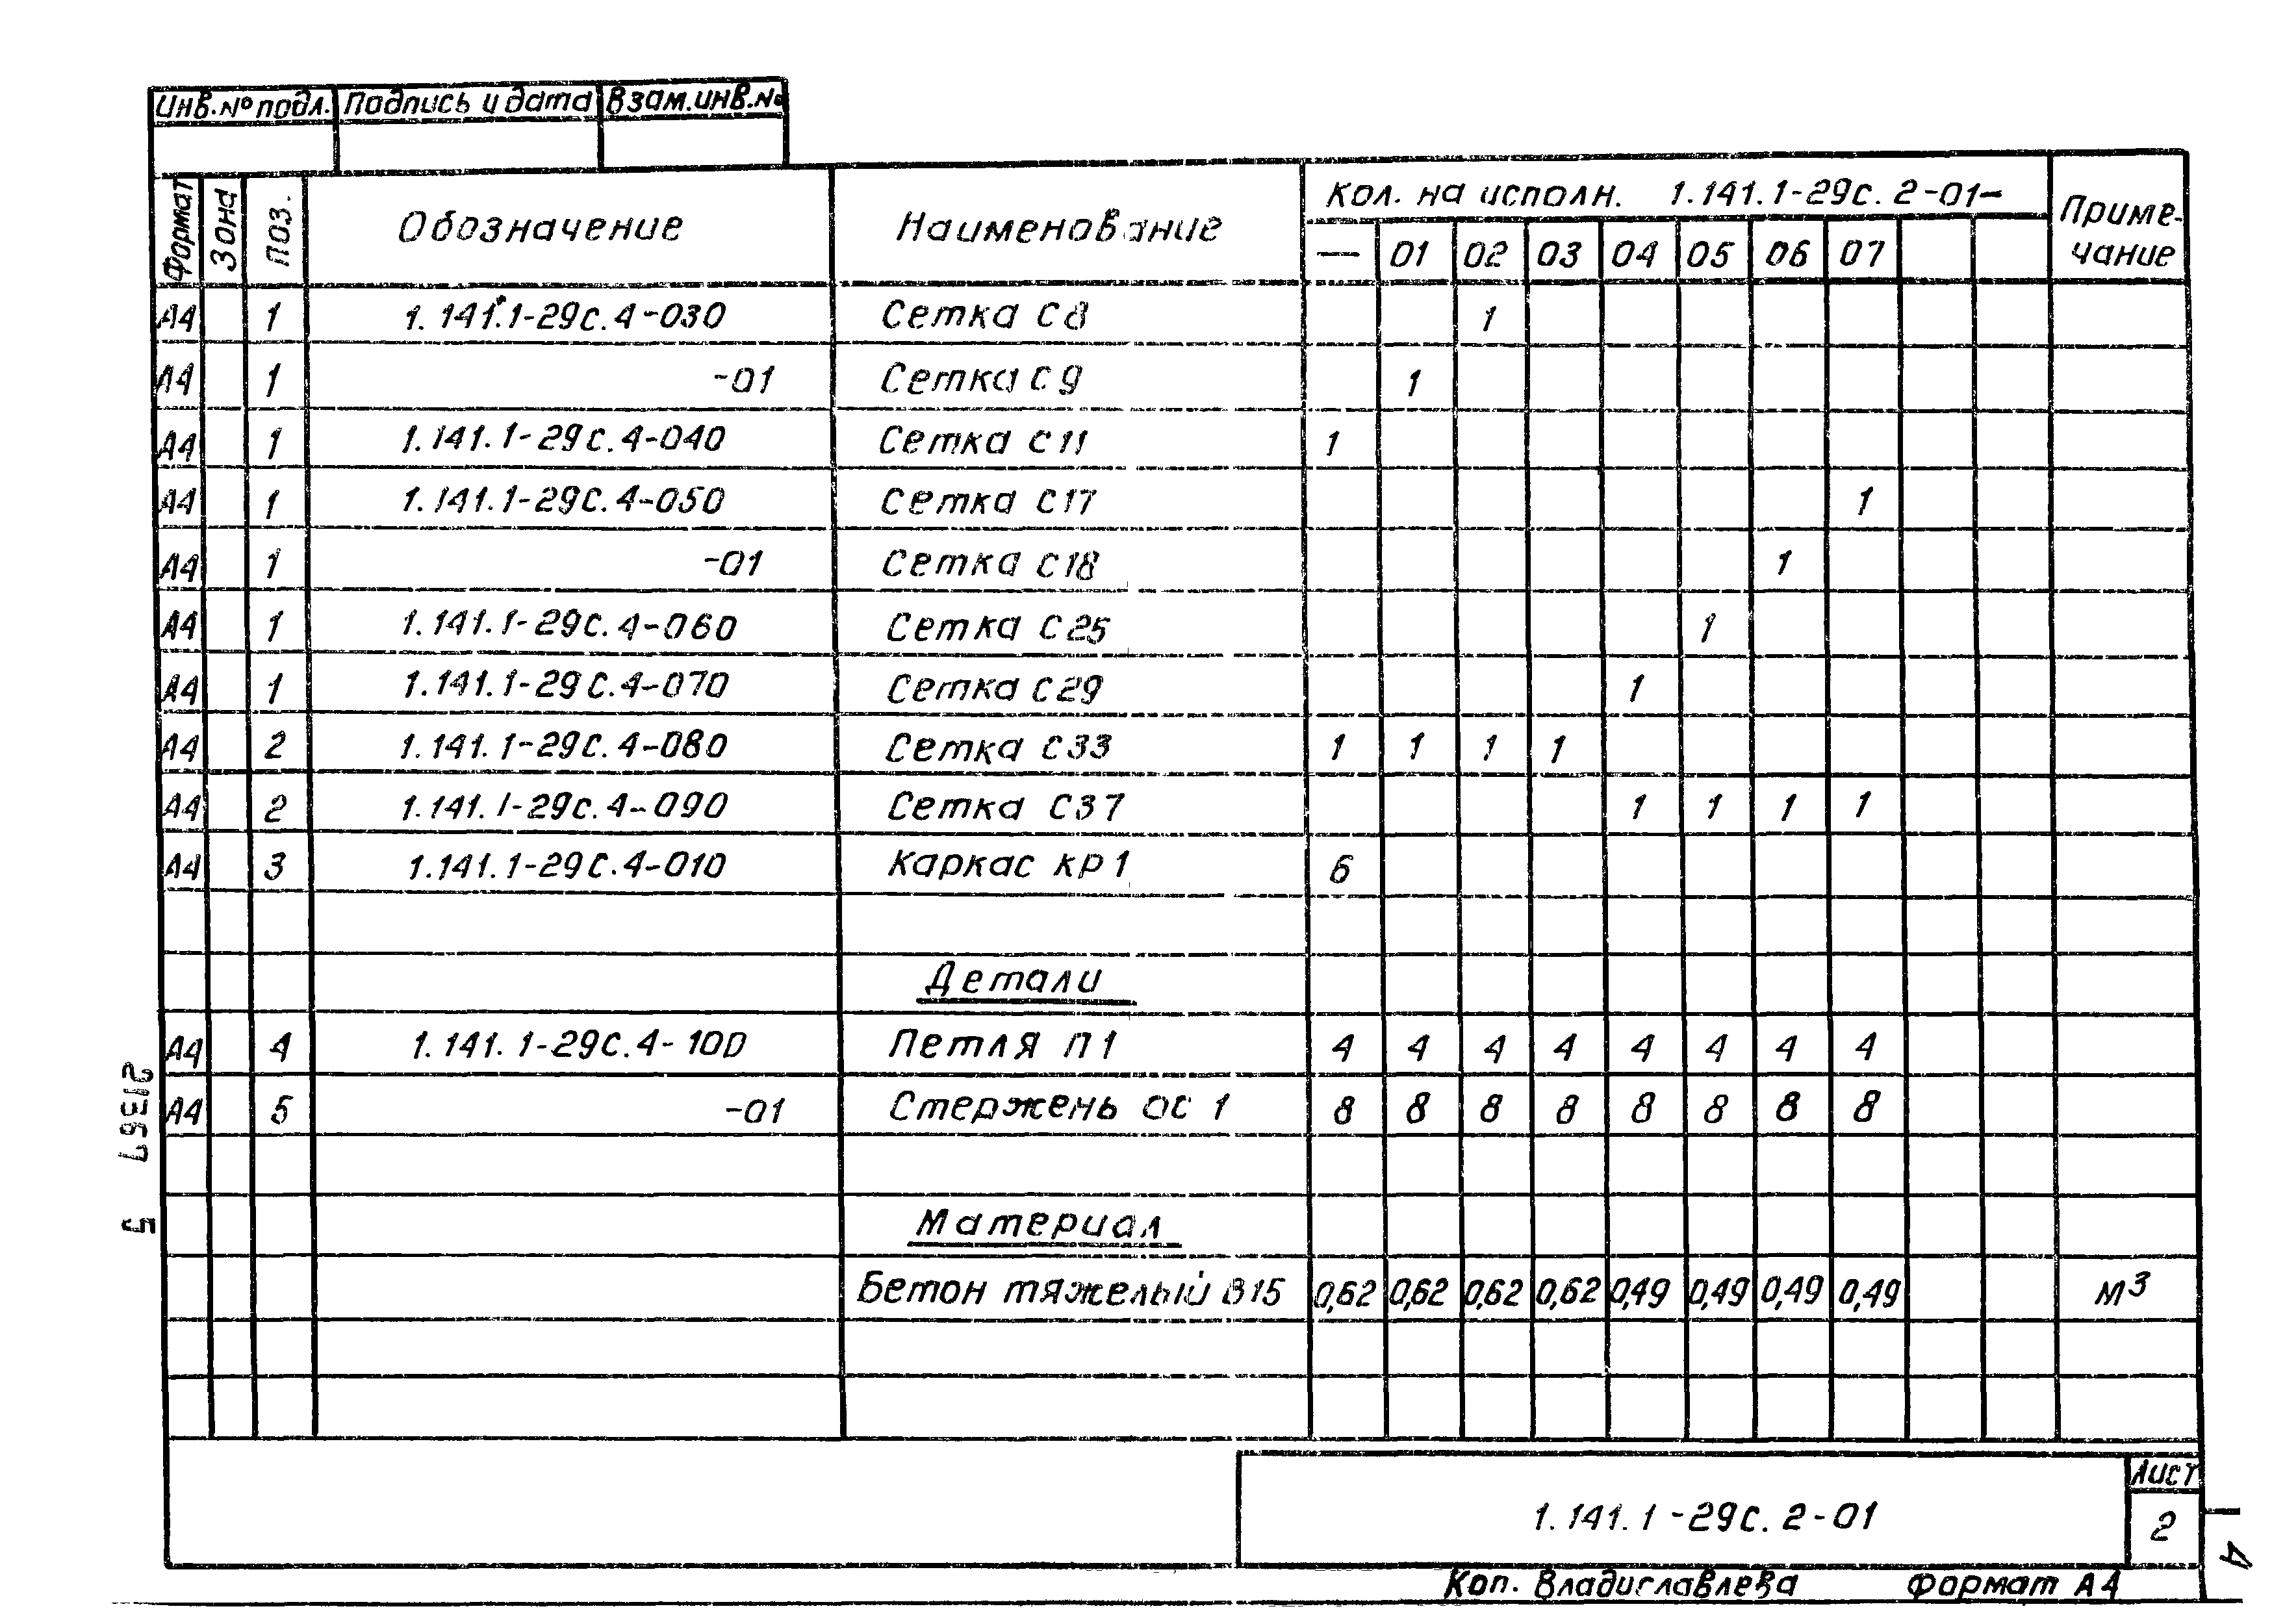 Инв.№ подл. Подпись и дата Взам.инв.№
Формат Зона Поз. Обозначение Наименование Кол. на исполн. 1.141.1-29с.2-01- Приме-
чание
— 01 02 03 04 05 06 07
А4 1 1.141.1-29с.4-030 Сетка С8 1
А4 1 -01 Сетка С9 1
А4 1 1.141.1-29с.4-040 Сетка С11 1
А4 1 1.141.1-29с.4-050 Сетка С17 1
А4 1 -01 Сетка С18 1
А4 1 1.141.1-29с.4-060 Сетка С25 1
А4 1 1.141.1-29с.4-070 Сетка С29 1
А4 2 1.141.1-29с.4-080 Сетка С33 1 1 1 1
А4 2 1.141.1-29с.4-090 Сетка С37 1 1 1 1
А4 3 1.141.1-29с.4-010 Каркас кр1 6
Детали
А4 4 1.141.1-29с.4-100 Петля П1 4 4 4 4 4 4 4 4
А4 5 -01 Стержень ОС 1 8 8 8 8 8 8 8 8
Материал
Бетон тяжелый В15 0,62 0,62 0,62 0,62 0,49 0,49 0,49 0,49 м³
21367 5
1.141.1-29с.2-01
Лист
2
4
Коп. Владиславлева Формат А4